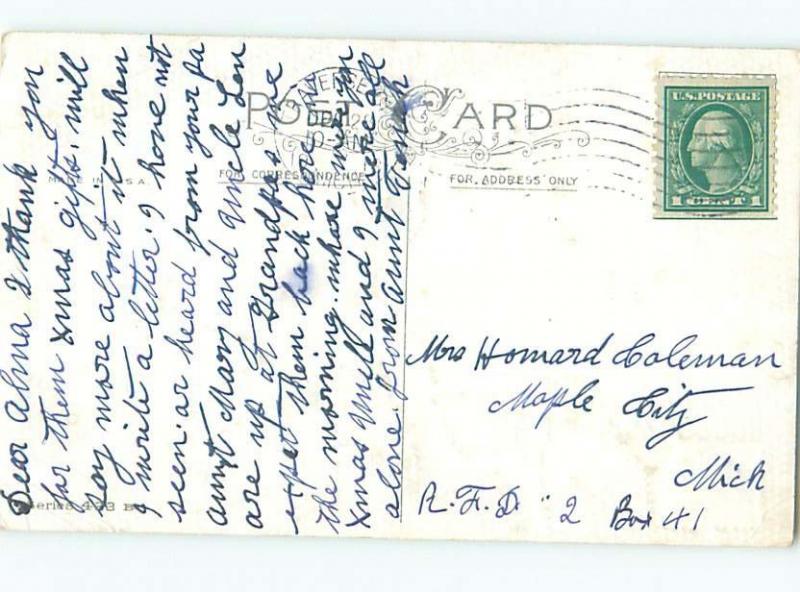 Dear Alma I thank you
for them Xmas gifts. will
say more about it when
I write a letter. I hone not
seen or heard from your pa
aunt Mary and Uncle Len
are up at Grandpas we
expet them back here in
the morning. where were you
Xmas Mell and I were all
alone. from aunt
POST CARD
MADE IN U.S.A.
FOR CORRESPONDENCE
FOR ADDRESS ONLY
U.S. POSTAGE
1 CENT 1
Mrs Homard Coleman
Maple City
Mich
R.F.D. 2 Box 41
Series 433 B